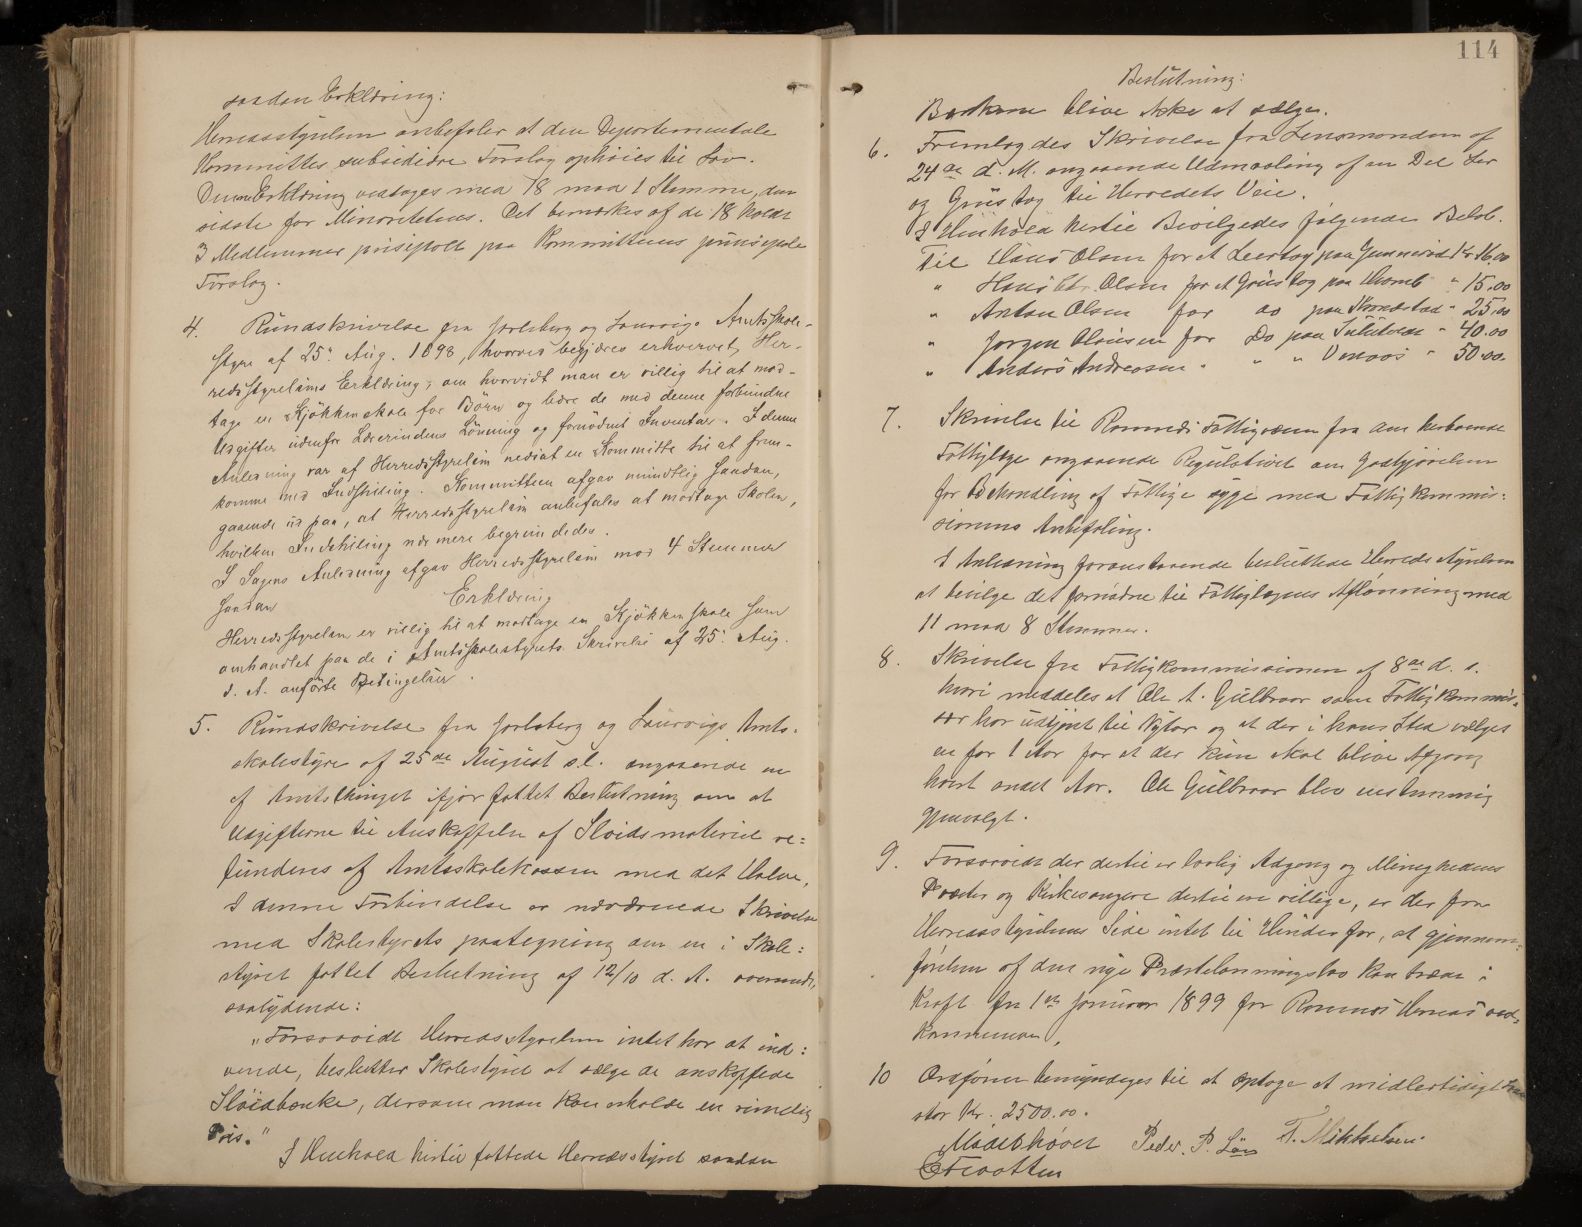 saadan Erklæring:
Herredsstyrelsen anbefaler at den Departementale
Kommittes subsidiære Forslag ophöies til Lov.
Denne Erklæring vedtages med 18 mod 1 Stemme, den
sidste for Minoritetens. Det bemærkes af de 18 holdt
3 Medlemmer prinsipalt paa Kommitteens prinsipale
Forslag.
4. Rundskrivelse fra Jarlsberg og Laurvigs Amtsskole-
styre af 25de Aug. 1898, hvorved begjæres erhvervet, Her-
redsstyrelsens Erklæring, om hvorvidt man er villig til at mod-
tage en Kjökkenskole for Börn og bære de med denne forbundne
Udgifter udenfor Lærerindens Lönning og fornödent Inventar. I denne
Anledning var af Herredsstyrelsen nedsat en Kommitte til at frem-
komme med Indstilling. Kommitteen afgav mundtlig saadan,
gaaende ud paa, at Herredsstyrelsen anbefales at modtage Skolen,
hvilken Indstilling nærmere begrundedes.
I Sagens Anledning afgav Herredsstyrelsen mod 4 Stemmer
saadan Erklæring
Herredsstyrelsen er villig til at modtage en Kjökkenskole som
omhandlet paa de i Amtsskolestyrets Skrivelse af 25de Aug.
d. A. anförte Betingelser.
5. Rundskrivelse fra Jarlsberg og Laurvigs Amts-
skolestyre af 25de August s.l. angaaende en
af Amtsthinget ifjor fattet Beslutning om at
Udgifterne til Anskaffelse af Sløidsmateriel re=
funderes af Amtsskolekassen med det Halve.
I denne Forbindelse er nærværende Skrivelse
med Skolestyrets paategning om en i Skole=
styret fattet Beslutning af 12/10 d. A.
saalydende:
"Forsaavidt Herredsstyrelsen intet har at ind=
vende, beslutter Skolestyret at sælge de anskaffede
Sløidbænke, dersom man kan erholde en rimelig
Pris."
I Henhold hertil fattede Herredsstyret saadan
114
Beslutning:
Bænkene blive ikke at sælges.
6. Fremlagdes Skrivelse fra Lensmanden af
24de d. M. angaaende Udmaaling af en Del Ler
og Grustag til Herredets Veie.
I Henhold hertil Bevilgedes følgende Beløb.
Til Hans Olsen for et Leertag paa Gunnerød Kr 16.00
" Hans Chr. Olsen for et Grustag paa " 15.00
" Anton Olsen for do paa " 25.00
" Jørgen for Do paa " 40.00
" Anders Andreasen " " " " 50.00.
7. Skrivelse til Ramnæs Fattigvæsen fra den herboende
Fattiglæge angaaende Regulativet om Godtgjørelsen
for Behandling af Fattige syge med Fattigkommis=
sionens Anbefaling.
I Anledning foranstaaende besluttede Herredsstyrelsen
at bevilge det fornødne til Fattiglægens Aflønning med
11 mod 8 Stemmer.
8. Skrivelse fra Fattigkommissionen af 8de d. s.
hvori meddeles at Ole A. Gulbraar som Fattigkommis=
sær har udtjent til Nytaar og at der i hans Sted vælges
en for 1 Aar for at der kun skal blive Afgang
hvert andet Aar. Ole Gulbraar blev enstemmig
gjenvalgt.
9. Forsaavidt der dertil er lovlig Adgang og Menighedens
Præster og Kirkesangere dertil ere villige, er der fra
Herredsstyrelsens Side intet til Hinder for, at gjennem=
førelsen af den nye Præstelønningslov kan træde i
Kraft fra 1ste Januar 1899 for Ramnæs Herreds ved=
kommende.
10 Ordføren bemyndiges til at optage et midlertidigt Laan
stor Kr. 2500.00.
Peder. P. Løis T. Mikkelsen.